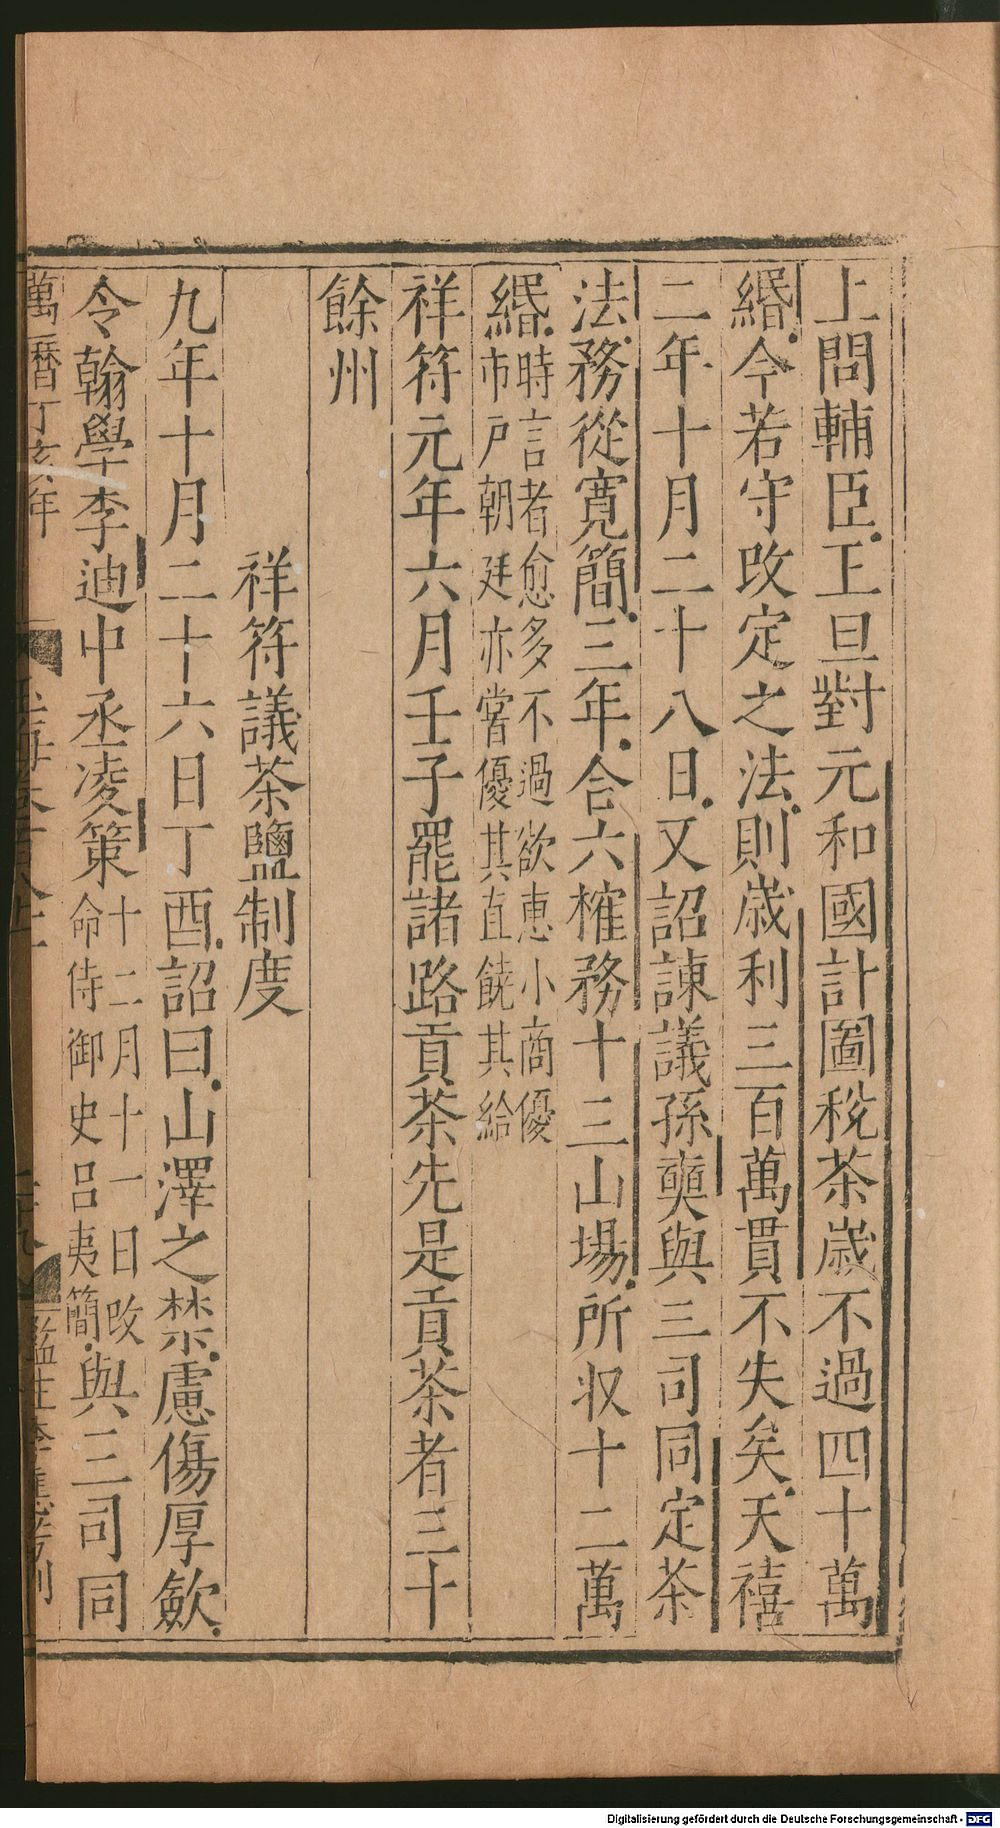 上問輔臣王旦對元和國計圖稅茶歲不過四十萬
緡今若守改定之法則歲利三百萬貫不失矣天禧
二年十月二十八日又詔諌議孫奭與三司同定茶
法務從寬簡三年合六榷務十三山場所収十二萬
緡時言者愈多不過欲惠小商優
市戶朝廷亦嘗優其直饒其給
祥符元年六月壬子罷諸路貢茶先是貢茶者三十
餘州
祥符議茶鹽制度
九年十月二十六日丁酉詔曰山澤之禁慮傷厚斂
令翰學李迪中丞凌策十二月十一日改
命侍御史呂夷簡與三司同
萬曆丁亥年
玉海卷百八十一
監生李
刊
Digitalisierung gefördert durch die Deutsche Forschungsgemeinschaft - DFG